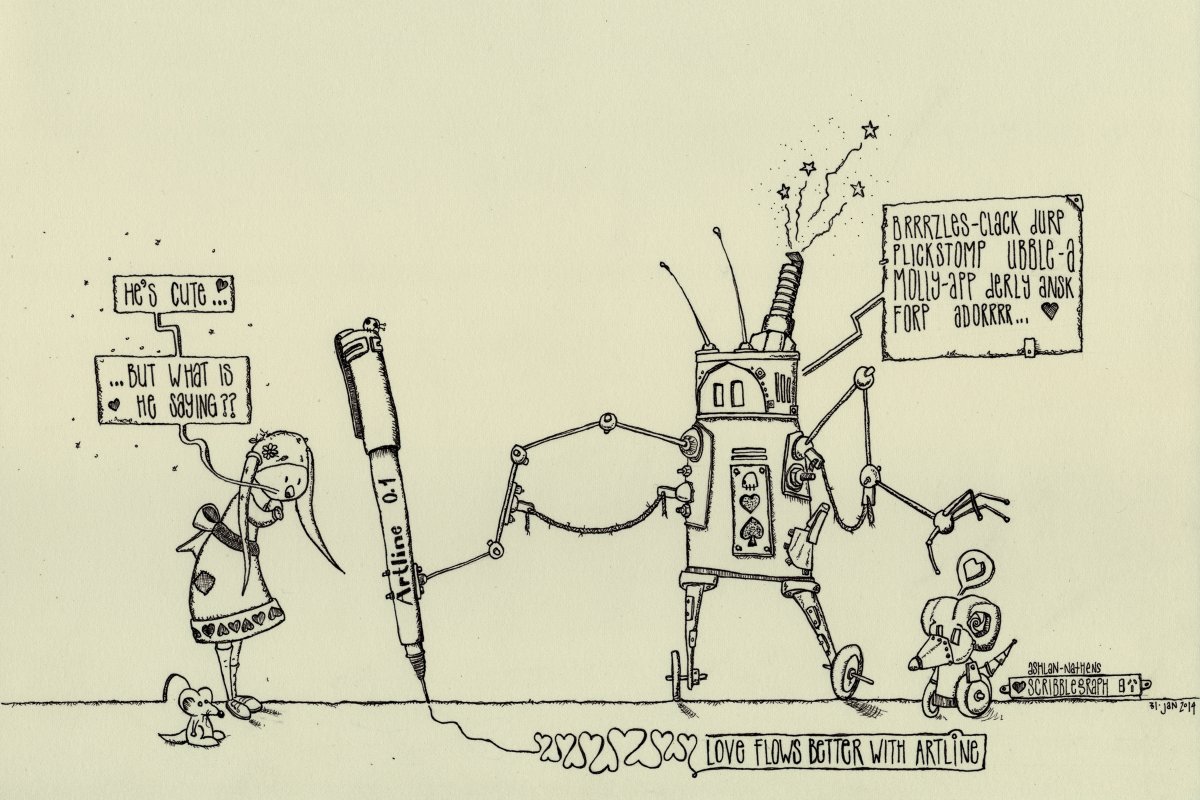 HE'S CUTE...
...BUT WHAT IS
HE SAYING??
Artline 0.1
BRRRZLES-CLACK DURP
PLICKSTOMP UBBLE-A
MOLLY-APP DERLY ANSK
FORP ADORRRR...
ASHLAN-NATHENS
SCRIBBLEGRAPH
31·JAN 2014
LOVE FLOWS BETTER WITH ARTLINE